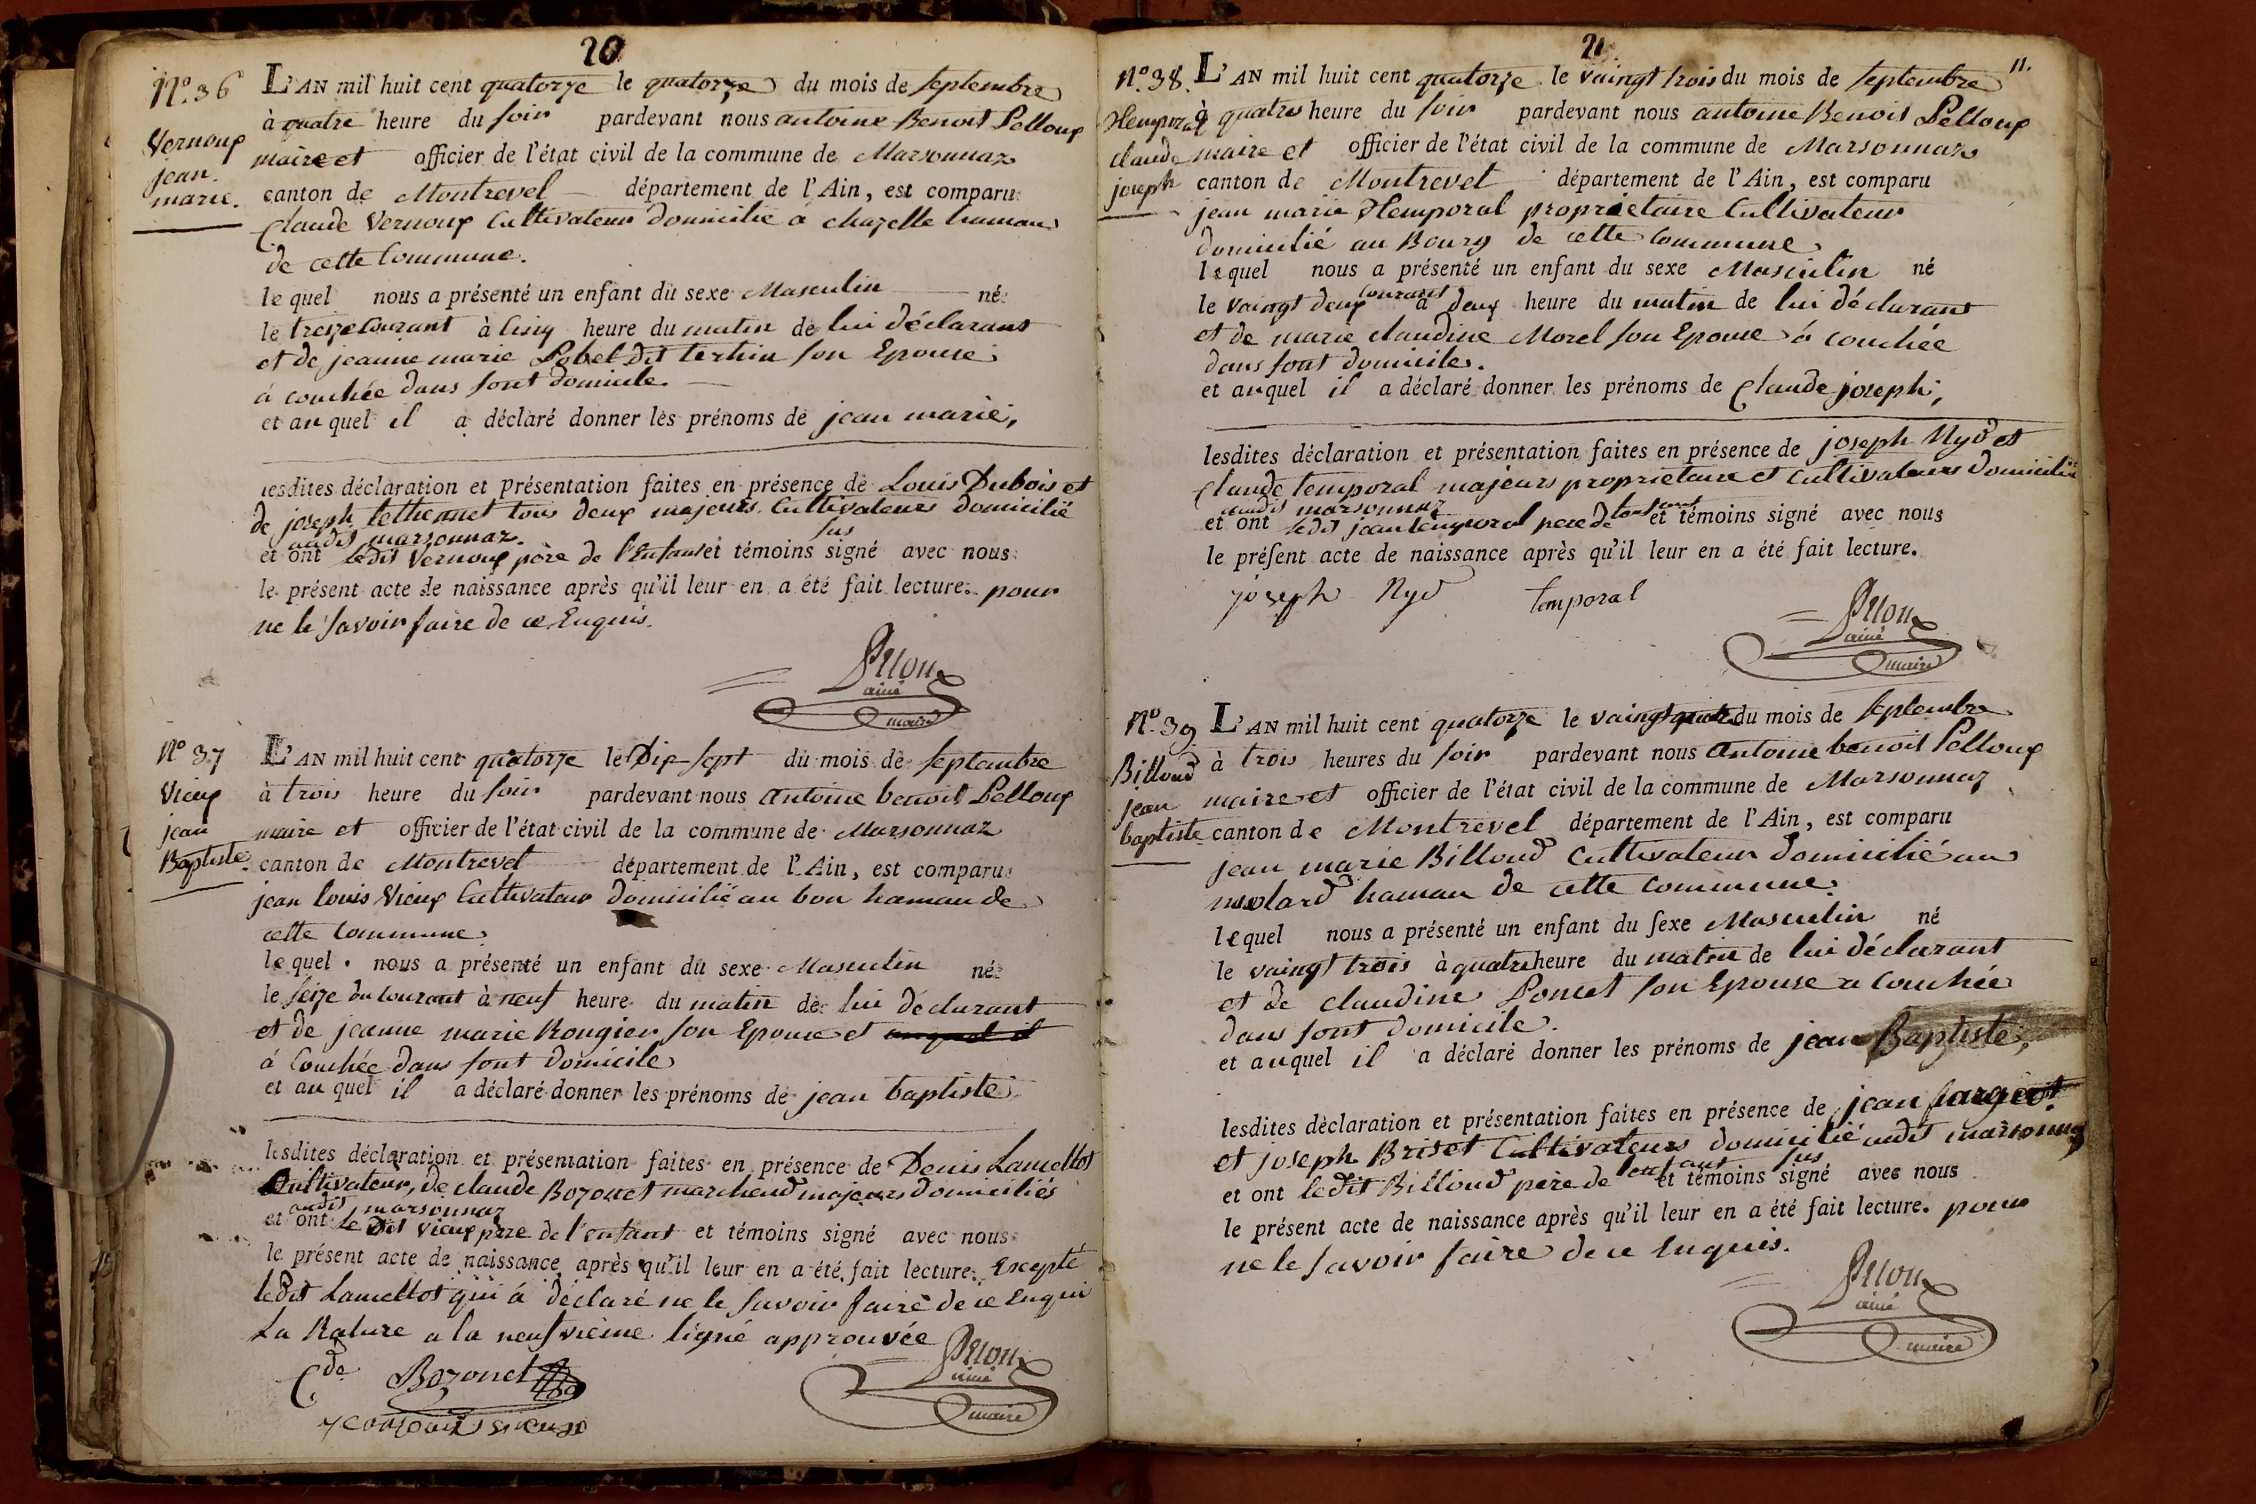 20
N.o 36
Vernoux
jean
marie.
L'AN mil huit cent quatorze le quatorze du mois de septembre
à quatre heure du soir pardevant nous antoine Benoit Pelloux
maire et officier de l'état civil de la commune de Marsonnaz
canton de Montrevel département de l'Ain, est comparu
Claude Vernoux Cultivateur domicilié à chazelle hamau
de cette Commune.
lequel nous a présenté un enfant du sexe Masculin né
le treize Courant à Cinq heure du matin de lui déclarant
et de jeanne marie Pobel dit tertin son Epouse
à couchée dans sont domicile.
et au quel il a déclaré donner les prénoms de jean marie,
lesdites déclaration et présentation faites en présence de Louis Dubois et
de joseph tethennet tous deux majeurs Cultivateurs domicilié
audit marsonnaz.
et ont ledit Vernoux père de l'Enfant et témoins sus signé avec nous
le présent acte de naissance après qu'il leur en a été fait lecture. pour
ne le savoir faire de ce Enquis.
Pelloux
ainé
maire
N.o 37
Vieux
jean
Baptiste.
L'AN mil huit cent quatorze le Dix-sept du mois de septembre
à trois heure du soir pardevant nous antoine benoit Pelloux
maire et officier de l'état civil de la commune de Marsonnaz
canton de Montrevel département de l'Ain, est comparu
jean louis Vieux Cultivateur domicilié au bon hamau de
cette Commune
lequel nous a présenté un enfant du sexe Masculin né
le seize du Courant à neuf heure du matin de lui déclarant
et de jeanne marie Rongier son Epouse et auquel il
à Couchée dans sont domicile
et au quel il a déclaré donner les prénoms de jean baptiste
lesdites déclaration et présentation faites en présence de Denis Lamellot
Cultivateur, de claude Bozonet marchand majeurs domiciliés
audit marsonnaz
et ont le Dit Vieux père de l'enfant et témoins signé avec nous
le présent acte de naissance après qu'il leur en a été fait lecture. Excepté
ledit Lamellot qui à déclaré ne le savoir faire de ce Enqui
La Rature a la neufvième ligne approuvée
Cde Bozonet
Pelloux
ainé
maire
21
11.
N.o 38.
Temporal
claude
joseph
L'AN mil huit cent quatorze le vaingt trois du mois de septembre
à quatre heure du soir pardevant nous antoine Benoit Pelloux
maire et officier de l'état civil de la commune de Marsonnaz
canton de Montrevel département de l'Ain, est comparu
jean marie Temporal propriétaire Cultivateur
domicilié au Bourg de cette Commune
lequel nous a présenté un enfant du sexe Masculin né
le vaingt deux courant à deux heure du matin de lui déclarant
et de marie claudine Morel son Epouse à couchée
dans sont domicile.
et auquel il a déclaré donner les prénoms de Claude joseph,
lesdites déclaration et présentation faites en présence de joseph Nyd et
Claude temporal majeurs proprietaire et Cultivateurs domicilié
audit marsonnaz
et ont ledit jean temporal pere de l'enfant et témoins signé avec nous
le présent acte de naissance après qu'il leur en a été fait lecture.
joseph Nyd temporal
Pelloux
ainé
maire
N.o 39
Billoud
jean
baptiste
L'AN mil huit cent quatorze le vaingt quatre du mois de septembre
à trois heures du soir pardevant nous antoine benoit Pelloux
maire et officier de l'état civil de la commune de Marsonnaz
canton de Montrevel département de l'Ain, est comparu
jean marie Billoud Cultivateur domicilié au
molard hamau de cette Commune.
lequel nous a présenté un enfant du sexe Masculin né
le vaingt trois à quatre heure du matin de lui déclarant
et de claudine Poncet son Epouse a Couchée
dans sont domicile.
et auquel il a déclaré donner les prénoms de jean Baptiste,
lesdites déclaration et présentation faites en présence de jean
et joseph Briset Cultivateurs domicilié audit marsonnaz
et ont ledit Billoud père de l'enfant et témoins sus signé avec nous
le présent acte de naissance après qu'il leur en a été fait lecture. pour
ne le savoir faire de ce Enquis.
Pelloux
ainé
maire